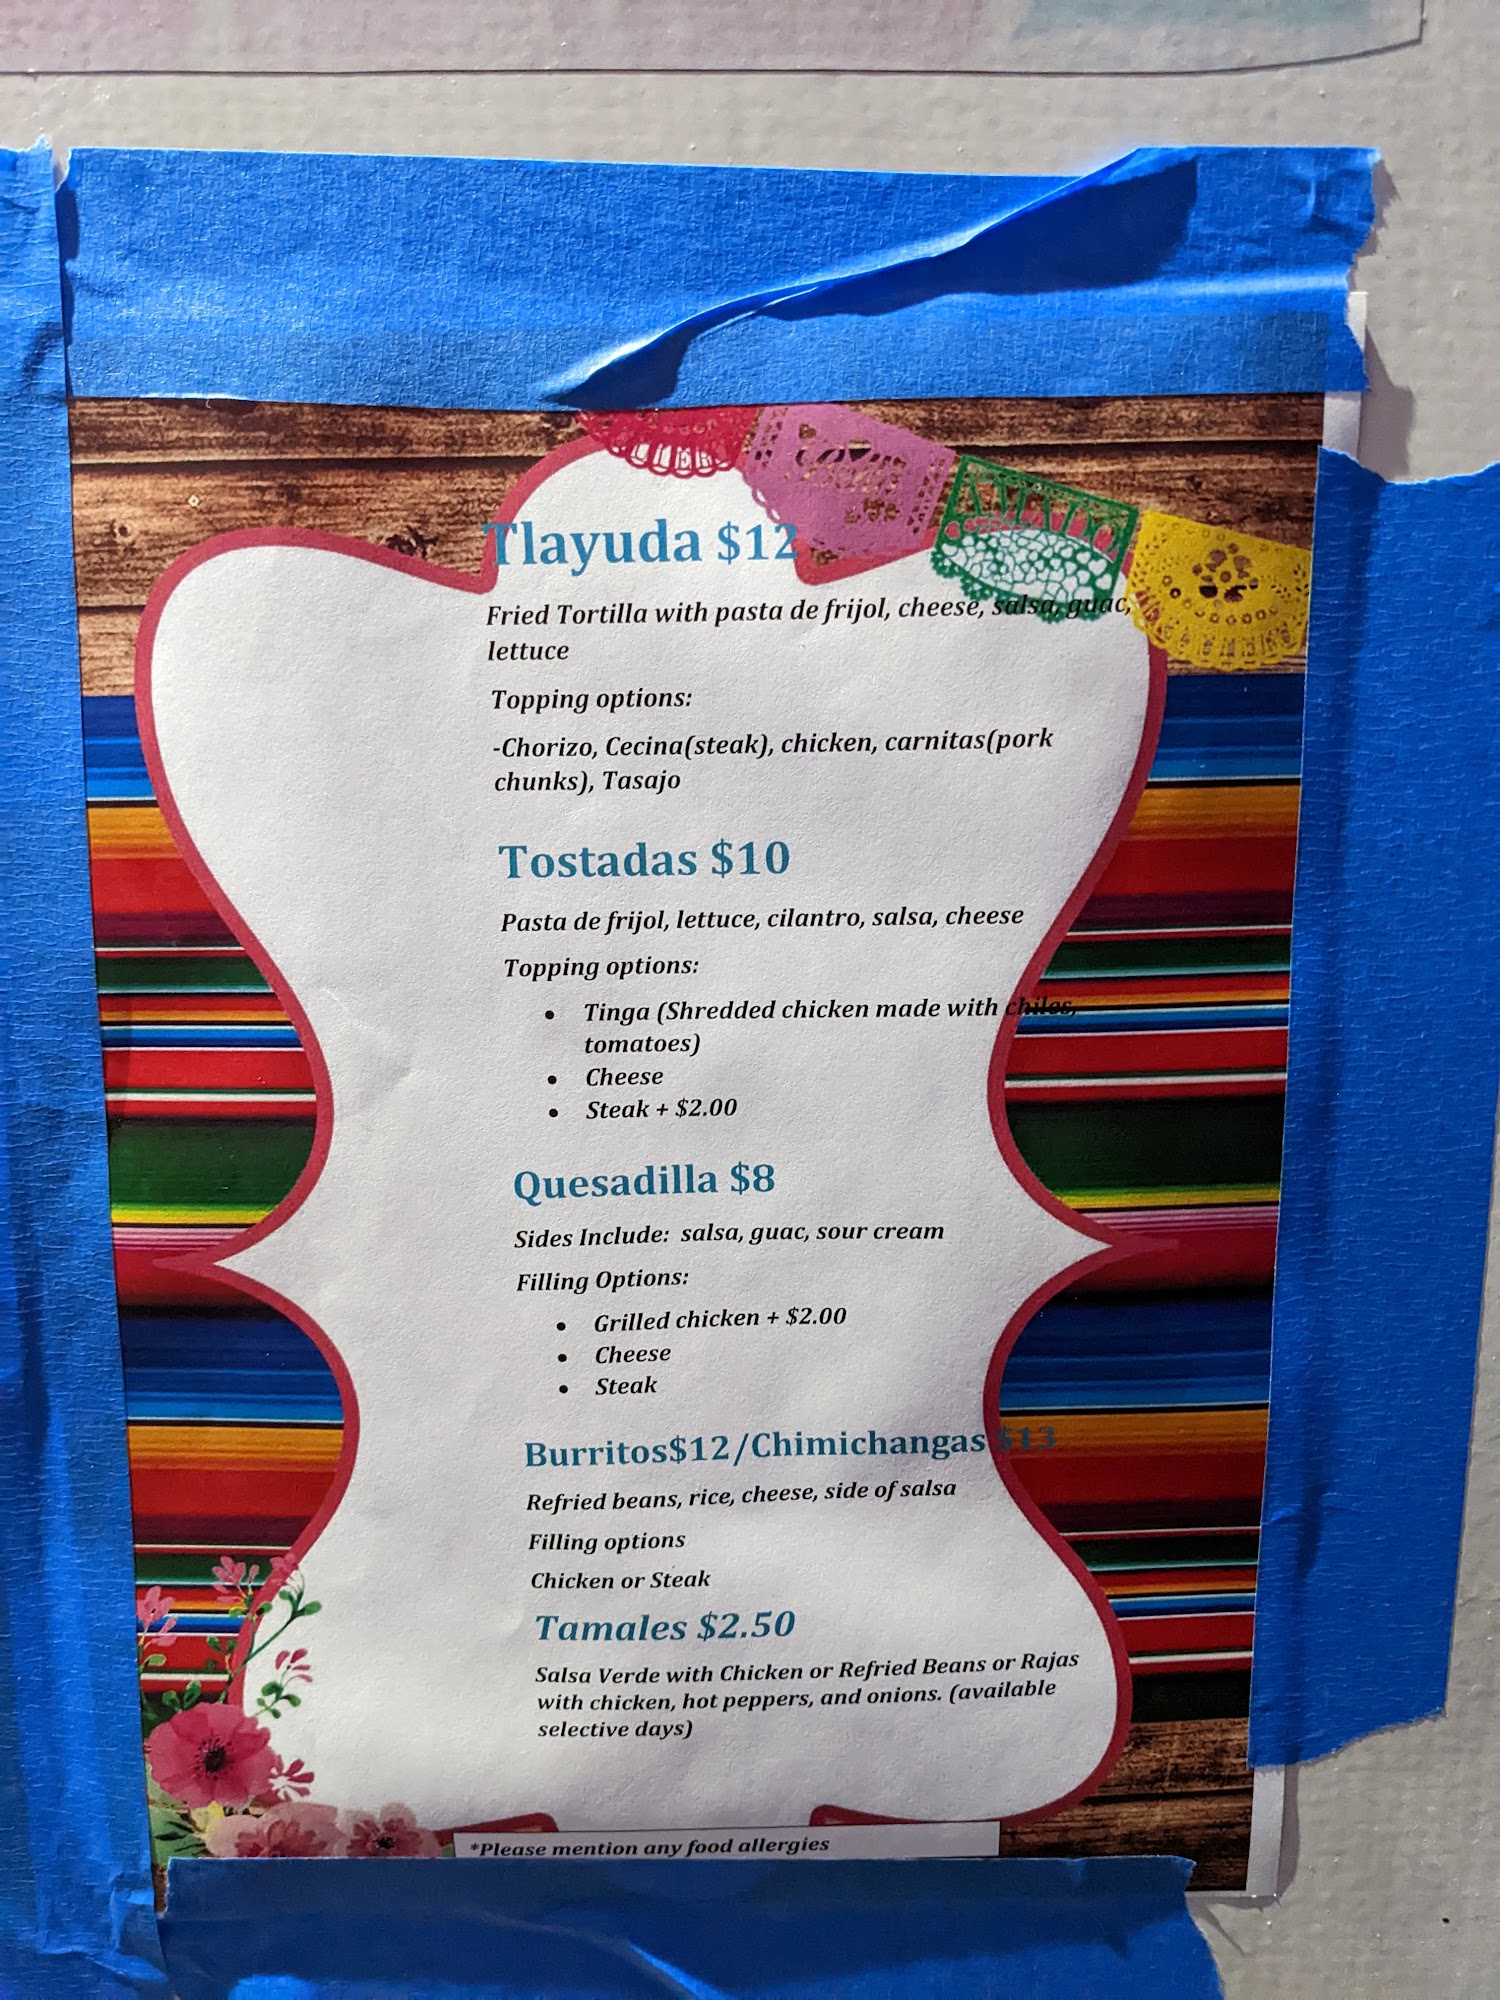 Tlayuda $12
Fried Tortilla with pasta de frijol, cheese, salsa, guac,
lettuce
Topping options:
-Chorizo, Cecina(steak), chicken, carnitas(pork
chunks), Tasajo
Tostadas $10
Pasta de frijol, lettuce, cilantro, salsa, cheese
Topping options:
• Tinga (Shredded chicken made with chiles,
tomatoes)
• Cheese
• Steak + $2.00
Quesadilla $8
Sides Include: salsa, guac, sour cream
Filling Options:
• Grilled chicken + $2.00
• Cheese
• Steak
Burritos$12/Chimichangas $13
Refried beans, rice, cheese, side of salsa
Filling options
Chicken or Steak
Tamales $2.50
Salsa Verde with Chicken or Refried Beans or Rajas
with chicken, hot peppers, and onions. (available
selective days)
*Please mention any food allergies